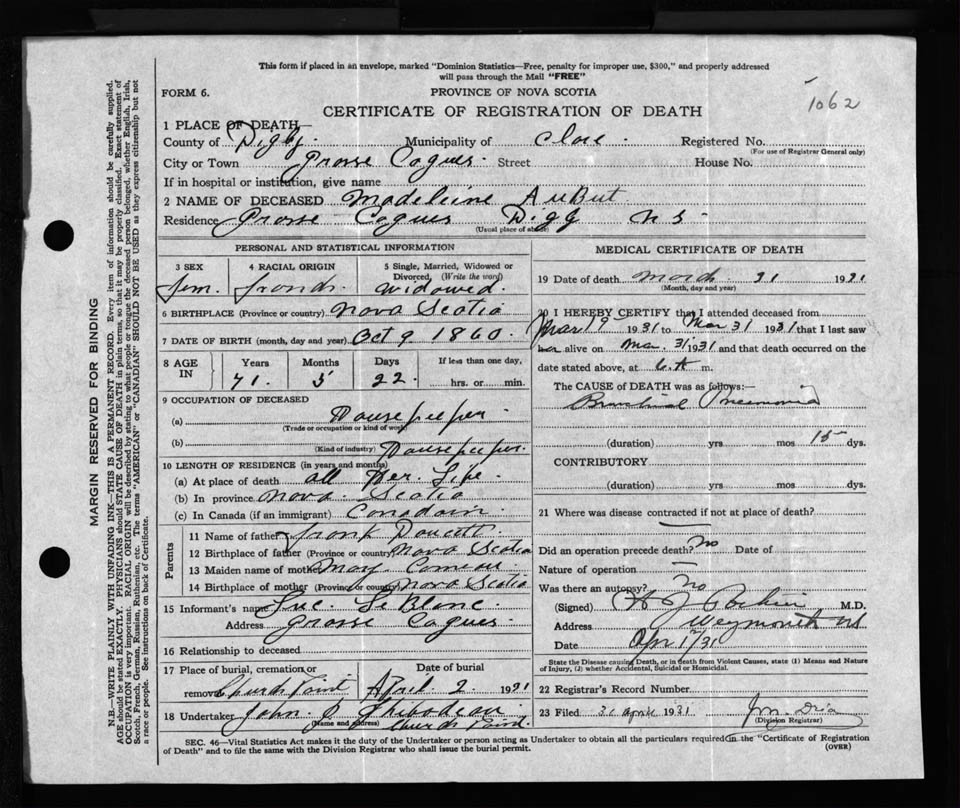 This form if placed in an envelope, marked "Dominion Statistics—Free, penalty for improper use, $300," and properly addressed
will pass through the Mail "FREE"
FORM 6.
PROVINCE OF NOVA SCOTIA
1062
CERTIFICATE OF REGISTRATION OF DEATH
1 PLACE OF DEATH—
County of Digby Municipality of Clare Registered No.
(For use of Registrar General only)
City or Town Grosse Coques Street House No.
If in hospital or institution, give name
2 NAME OF DECEASED Madeleine AuBut
Residence Grosse Coques Digby N S
(Usual place of abode)
PERSONAL AND STATISTICAL INFORMATION
3 SEX
Fem.
4 RACIAL ORIGIN
French
5 Single, Married, Widowed or
Divorced, (Write the word)
widowed.
6 BIRTHPLACE (Province or country) Nova Scotia
7 DATE OF BIRTH (month, day and year) Oct 9 1860.
8 AGE
IN
Years
71.
Months
5
Days
22.
If less than one day,
hrs. or min.
9 OCCUPATION OF DECEASED
(a) Housekeeper
(Trade or occupation or kind of work)
(b) Housekeeper.
(Kind of industry)
10 LENGTH OF RESIDENCE (in years and months)
(a) At place of death all Her Life.
(b) In province Nova Scotia
(c) In Canada (if an immigrant) Canadain
Parents
11 Name of father Frank Doucett
12 Birthplace of father (Province or country) Nova Scotia
13 Maiden name of mother Mary Comeau
14 Birthplace of mother (Province or country) Nova Scotia
15 Informant's name Luc LeBlanc.
Address Grosse Coques
16 Relationship to deceased
17 Place of burial, cremation or
removal Church Point
Date of burial
April 2 1931
18 Undertaker John P Thibodeau
(Name and address) Church Point.
MEDICAL CERTIFICATE OF DEATH
19 Date of death March 31 1931
(Month, day and year)
20 I HEREBY CERTIFY that I attended deceased from
Mar 19 1931 to Mar 31 1931 that I last saw
her alive on Mar. 31 1931 and that death occurred on the
date stated above, at 6. A m.
The CAUSE OF DEATH was as follows:—
Bronchial Pneumonia
(duration) yrs mos 15 dys.
CONTRIBUTORY
(duration) yrs. mos dys.
21 Where was disease contracted if not at place of death?
Did an operation precede death? No Date of
Nature of operation
Was there an autopsy? No
(Signed) M.D.
Address Weymouth NS
Date Apr 1/31
State the Disease causing Death, or in death from Violent Causes, state (1) Means and Nature
of Injury, (2) whether Accidental, Suicidal or Homicidal.
22 Registrar's Record Number
23 Filed april 1931
(Division Registrar)
SEC. 46—Vital Statistics Act makes it the duty of the Undertaker or person acting as Undertaker to obtain all the particulars required in the "Certificate of Registration
of Death" and to file the same with the Division Registrar who shall issue the burial permit.
(OVER)
MARGIN RESERVED FOR BINDING
N.B.—WRITE PLAINLY WITH UNFADING INK—THIS IS A PERMANENT RECORD. Every item of information should be carefully supplied.
AGE should be stated EXACTLY. PHYSICIANS should STATE CAUSE OF DEATH in plain terms, so that it may be properly classified. Exact statement of
OCCUPATION is very important. RACIAL ORIGIN will be described by stating to what people or tongue the deceased person belonged, whether English, Irish,
Scotch, French, German, Russian, Ruthenian, etc. The terms "AMERICAN" or "CANADIAN" SHOULD NOT BE USED as they express citizenship but not
a race or people. See instructions on back of Certificate.